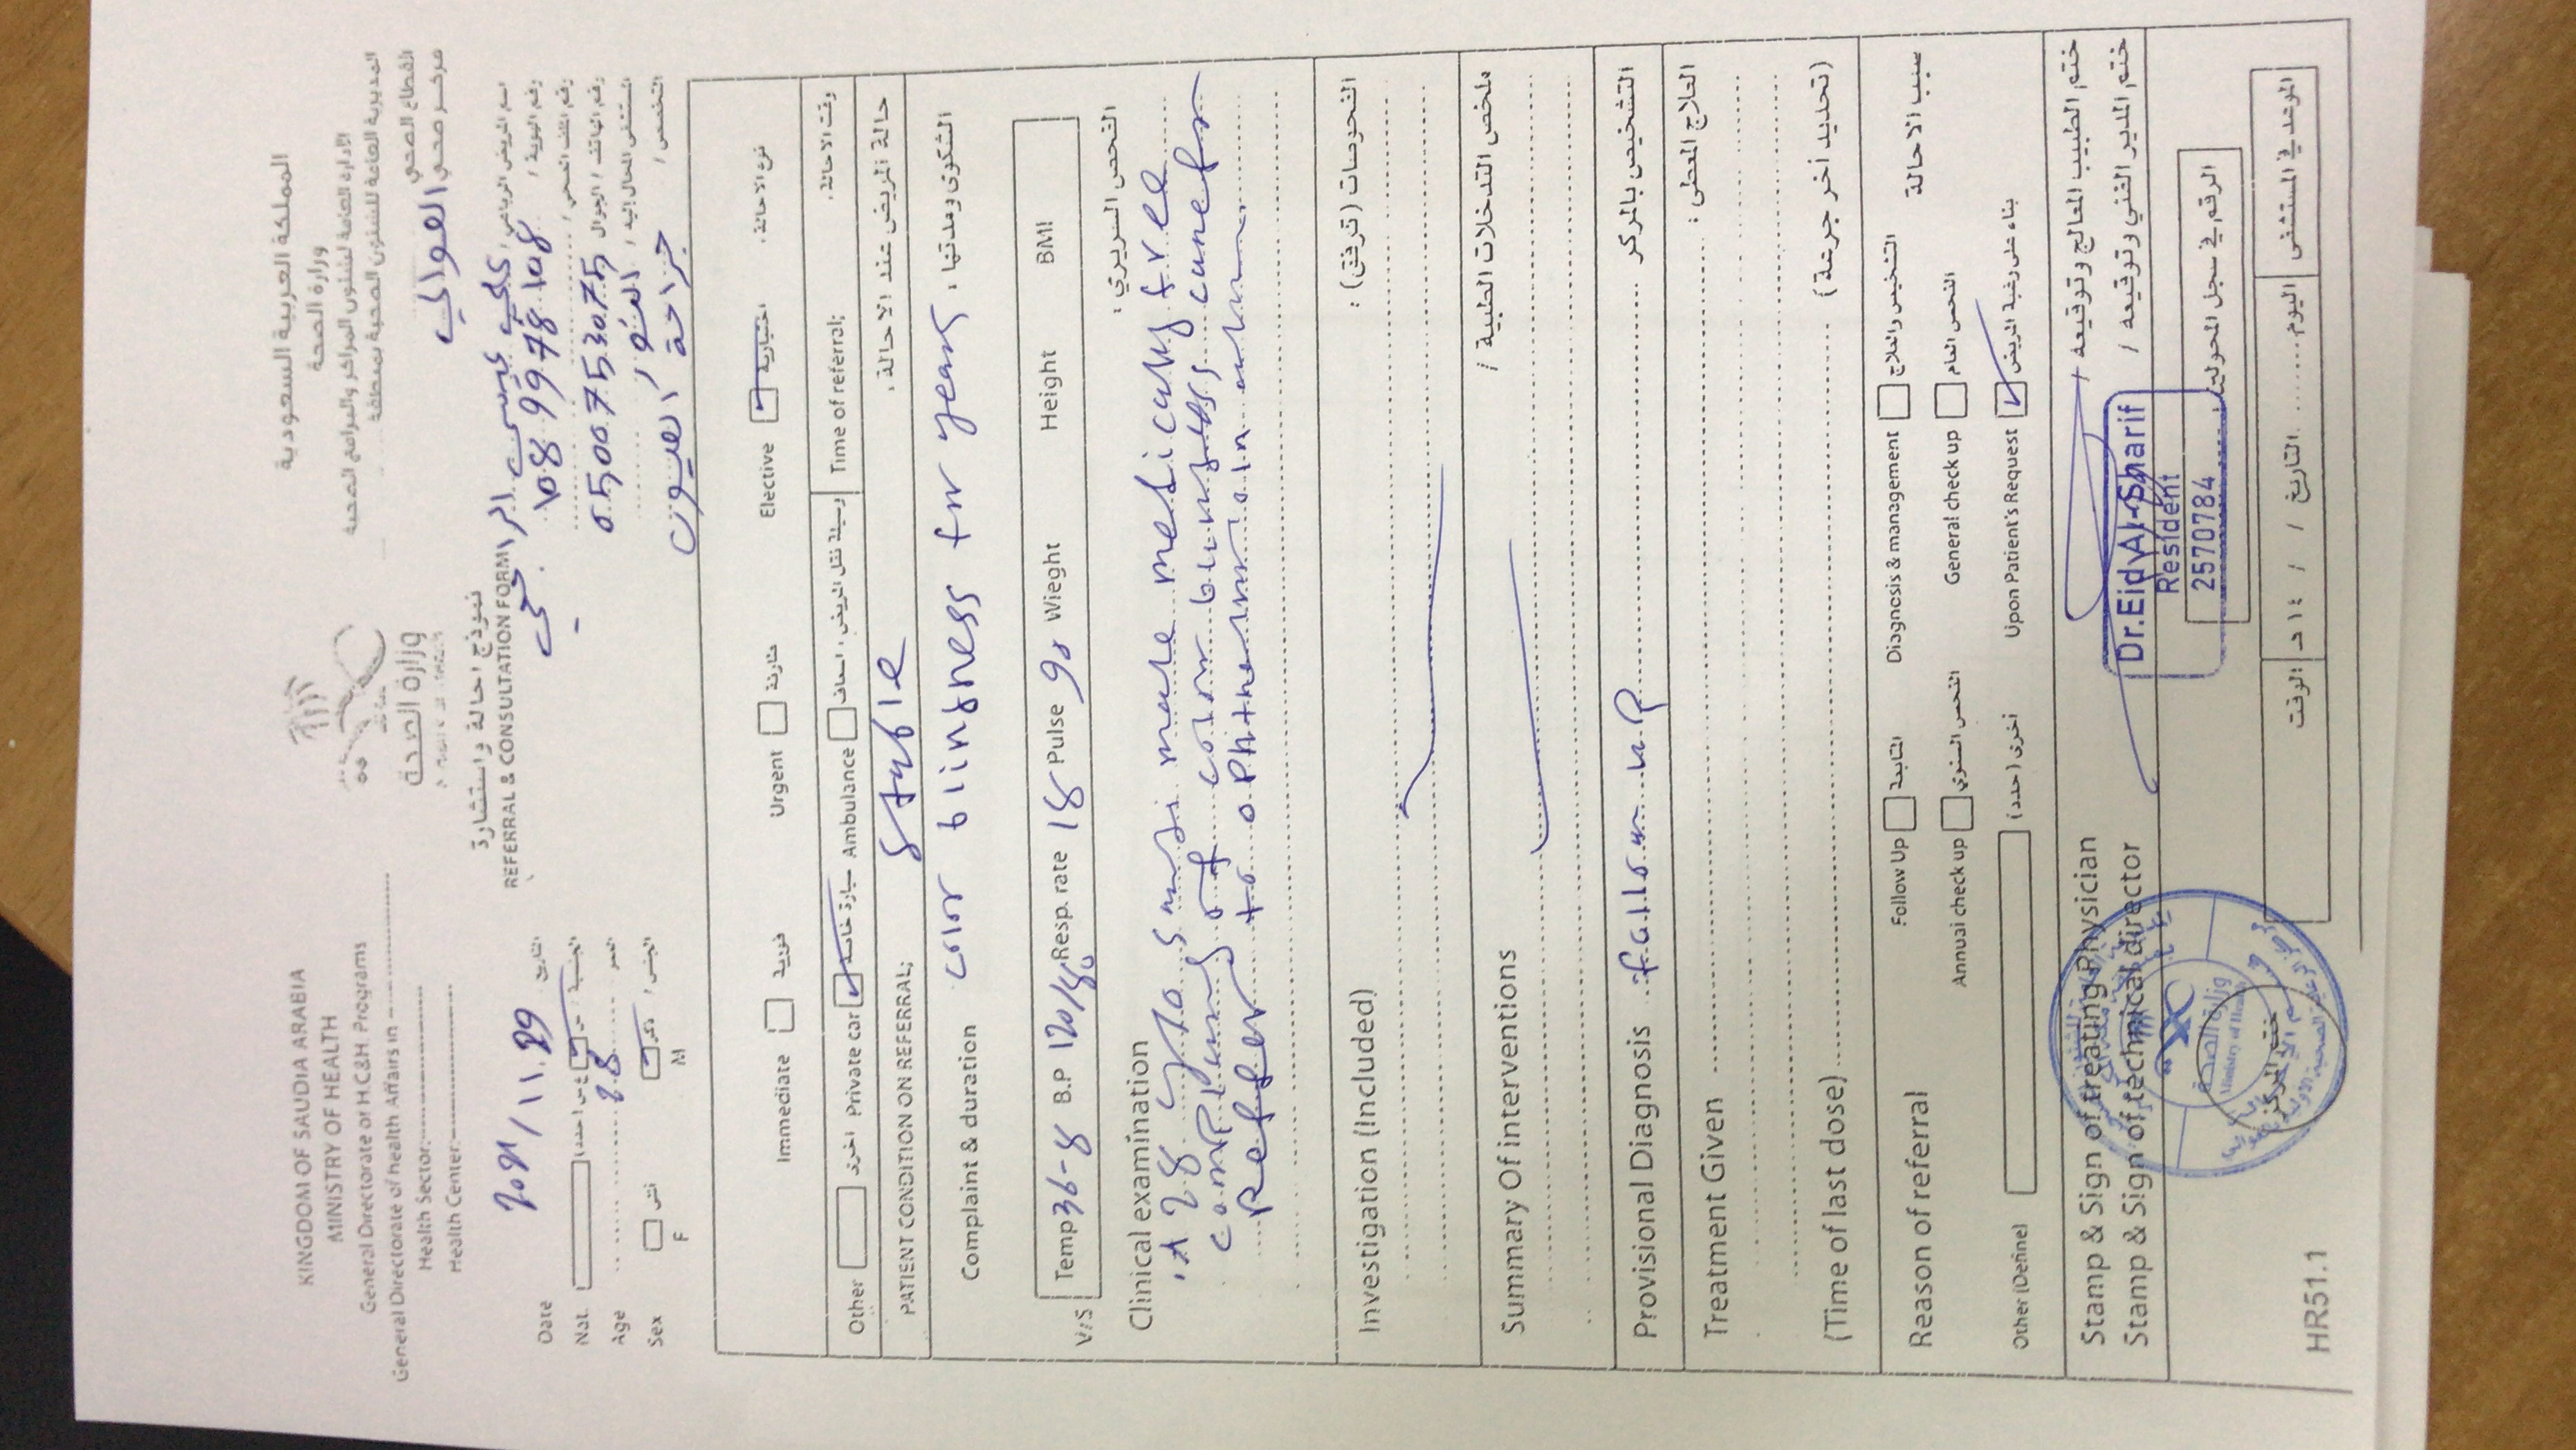 KINGDOM OF SAUDIA ARABIA
MINISTRY OF HEALTH
General Directorate of H.C&H. Programs
General Directorate of health Affairs in
Health Sector:
Health Center:
المملكة العربية السعودية
وزارة الصحة
الإدارة العامة لشئون المراكز والبرامج الصحية
المديرية العامة للشئون الصحية بمنطقة
القطاع الصحي
مركز صحي العوالي
وزارة الصحة
نموذج احالة واستشارة
REFERRAL & CONSULTATION FORM
Date 2021/11.29 التاريخ
Nat. (حدد) غ س س الجنسية:
Age 28 العمر
Sex أنثى ذكر الجنس /
F M
اسم المريض الرباعي / علي عيسى
رقم الهوية / 1089978108
رقم الملف الصحي /
رقم الهاتف / الجوال 0500753075
المستشفى المحال إليه /
التخصص / جراحة العيون
Immediate فورية Urgent طارئة Elective اختيارية نوع الاحالة:
Other اخرى Private car سيارة خاصة Ambulance وسيلة نقل المريض: اسعاف Time of referral; وقت الاحالة:
PATIENT CONDITION ON REFERRAL; stable حالة المريض عند الاحالة:
Complaint & duration color blindness for years الشكوى ومدتها:
V/S Temp 36-8 B.P 120/80 Resp. rate 18 Pulse 90 Wieght Height BMI
Clinical examination الفحص السريري:
A 28 y/o Saudi male medically free
of color blindness
Reffer to
Investigation (Included) الفحوصات (ترفق):
Summary Of interventions ملخص التدخلات الطبية /
Provisional Diagnosis follow up التشخيص بالمركز
Treatment Given العلاج المعطى:
(Time of last dose) (تحديد أخر جرعة)
Follow Up المتابعة Diagnosis & management التشخيص والعلاج
Reason of referral سبب الاحالة
Annual check up الفحص السنوي General check up الفحص العام
Other (Define) أخرى (حدد) Upon Patient's Request بناء على رغبة المريض
Stamp & Sign of treating Physician ختم الطبيب المعالج وتوقيعه /
Stamp & Sign of technical director ختم المدير الفني وتوقيعه /
Dr.Eid Al-Sharif
Resident
2570784
الرقم في سجل المحولين:
وزارة الصحة
Ministry of Health
ختم المركز
الموعد في المستشفى اليوم التاريخ / / ١٤ هـ الوقت
HR51.1